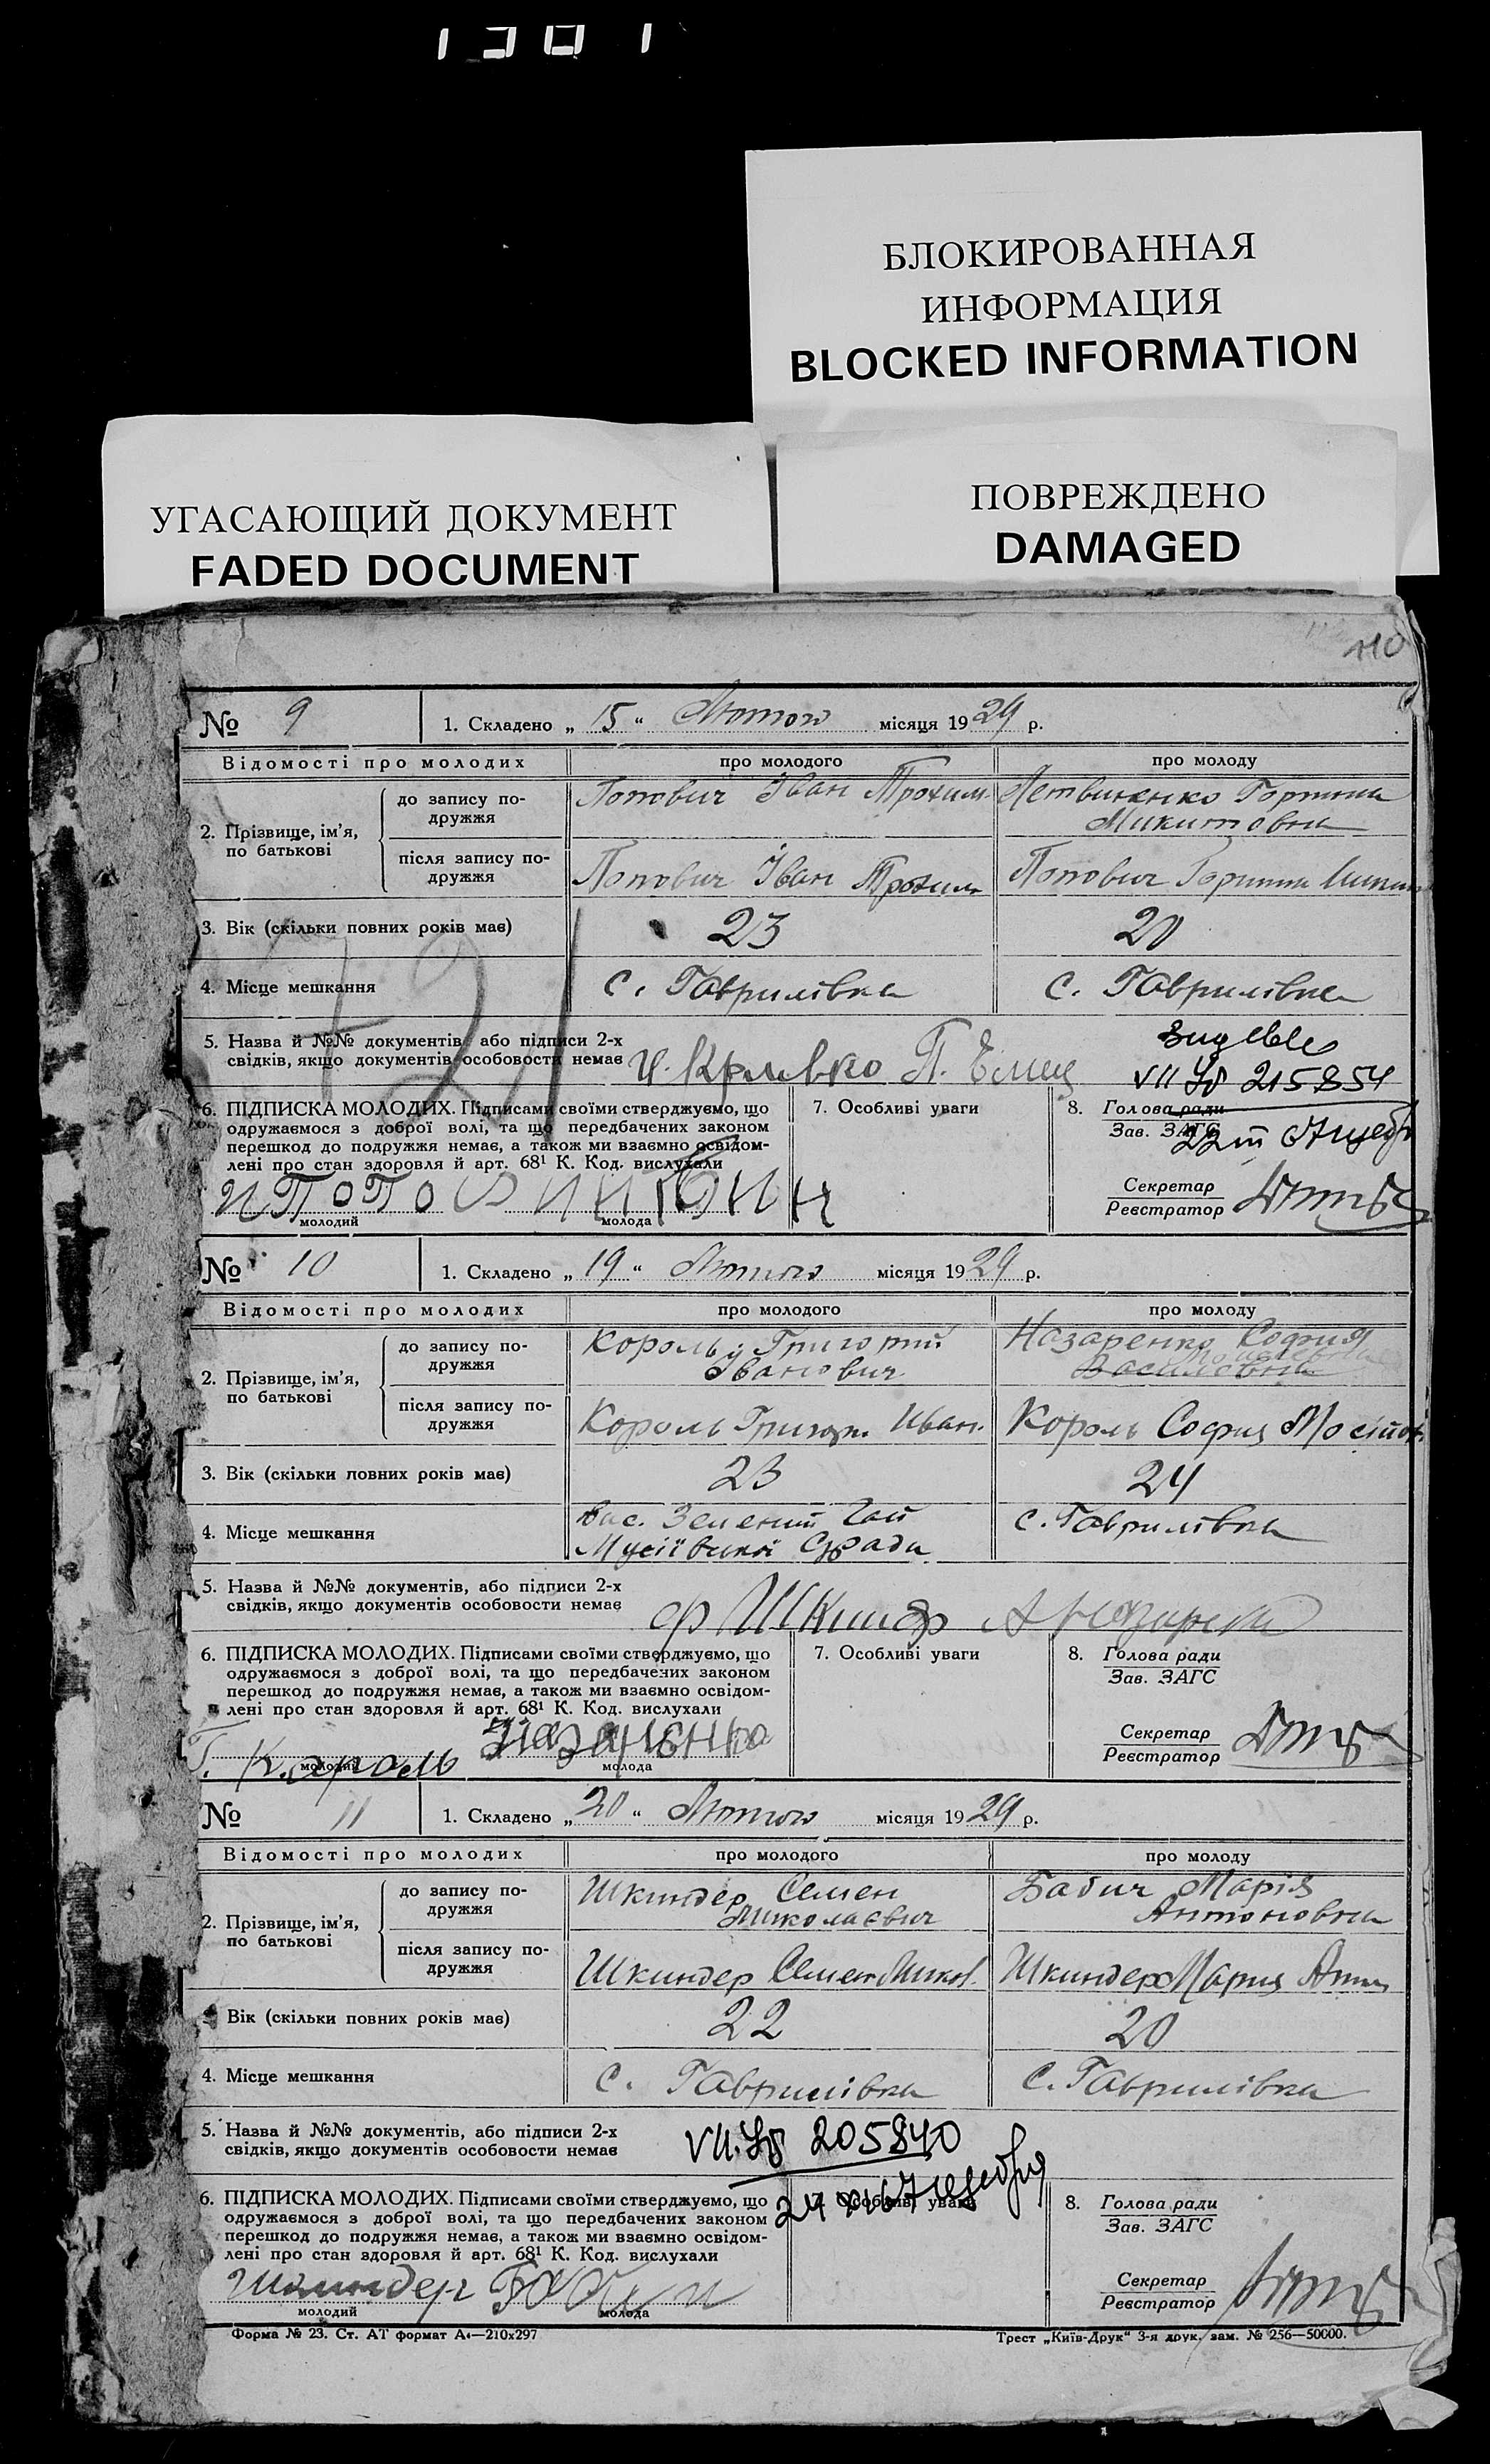 БЛОКИРОВАННАЯ
ИНФОРМАЦИЯ
BLOCKED INFORMATION
УГАСАЮЩИЙ ДОКУМЕНТ
FADED DOCUMENT
ПОВРЕЖДЕНО
DAMAGED
110
№ 9 1. Складено „ 15 “ Лютого місяця 1929 р.
Відомості про молодих про молодого про молоду
2. Прізвище, ім’я, по батькові
до запису подружжя Попович Іван Трохим. Летвиненко Горпина
Микитовна
після запису подружжя Попович Іван Трохим Попович Горпина
3. Вік (скільки повних років має) 23 20
4. Місце мешкання с. Гаврилівка с. Гаврилівка
5. Назва й №№ документів, або підписи 2-х
свідків, якщо документів особовости немає П. Ємец
VII 215854
6. ПІДПИСКА МОЛОДИХ. Підписами своїми стверджуємо, що
одружаємося з доброї волі, та що передбачених законом
перешкод до подружжя немає, а також ми взаємно освідом-
лені про стан здоровля й арт. 68¹ К. Код. вислухали
молодий молода
7. Особливі уваги
8. Голова ради
Зав. ЗАГС
Секретар
Реєстратор
№ 10 1. Складено „ 19 “ Лютого місяця 1929 р.
Відомості про молодих про молодого про молоду
2. Прізвище, ім’я, по батькові
до запису подружжя Король Григорий Назаренко София
Іванович Василевна
після запису подружжя Король Григор. Иван. Король София
3. Вік (скільки повних років має) 23 24
4. Місце мешкання Зелений Гай с. Гаврилівка
Мусіївської С/ради
5. Назва й №№ документів, або підписи 2-х
свідків, якщо документів особовости немає Ф Шкиндер А Назаренко
6. ПІДПИСКА МОЛОДИХ. Підписами своїми стверджуємо, що
одружаємося з доброї волі, та що передбачених законом
перешкод до подружжя немає, а також ми взаємно освідом-
лені про стан здоровля й арт. 68¹ К. Код. вислухали
Г. Король Назаренко
молодий молода
7. Особливі уваги
8. Голова ради
Зав. ЗАГС
Секретар
Реєстратор
№ 11 1. Складено „ 20 “ Лютого місяця 1929 р.
Відомості про молодих про молодого про молоду
2. Прізвище, ім’я, по батькові
до запису подружжя Шкиндер Семен Бабич Марія
Миколаєвич Антоновна
після запису подружжя Шкиндер Семен Микол. Шкиндер Мария
3. Вік (скільки повних років має) 22 20
4. Місце мешкання с. Гаврилівка с. Гаврилівка
5. Назва й №№ документів, або підписи 2-х
свідків, якщо документів особовости немає VII 205840
6. ПІДПИСКА МОЛОДИХ. Підписами своїми стверджуємо, що
одружаємося з доброї волі, та що передбачених законом
перешкод до подружжя немає, а також ми взаємно освідом-
лені про стан здоровля й арт. 68¹ К. Код. вислухали
Шкиндер Бабич
молодий молода
7. Особливі уваги
8. Голова ради
Зав. ЗАГС
Секретар
Реєстратор
Форма № 23. Ст. АТ формат А4—210х297
Трест „Київ-Друк“ 3-я друк. зам. № 256—50000.